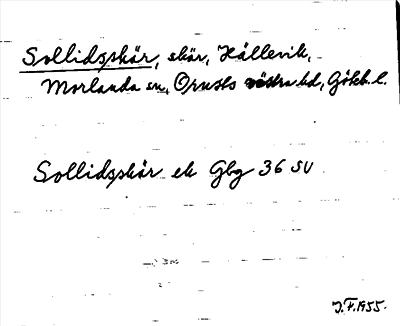 Sollidsskär, skär, Hällevik,
Morlanda sn, Orusts västra hd, Göteb. l.
Sollidsskär ek Gbg 36 SV
J.F. 1955.